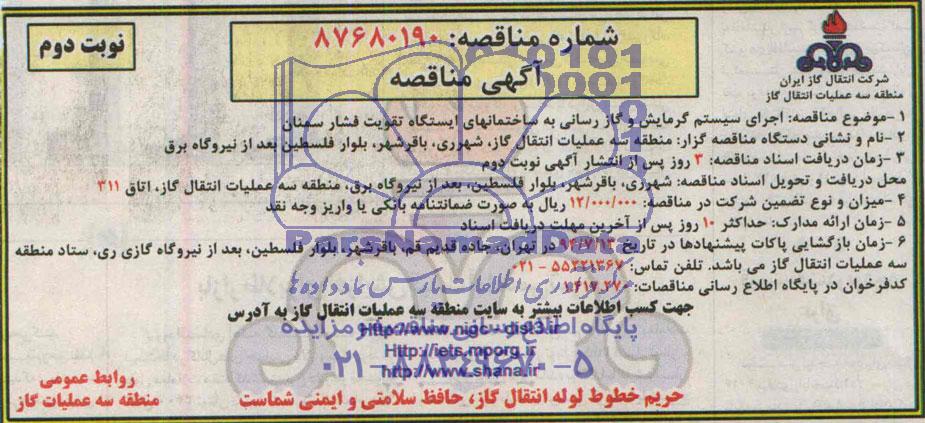 شرکت انتقال گاز ایران
منطقه سه عملیات انتقال گاز
شماره مناقصه: ۸۷۶۸۰۱۹۰
آگهی مناقصه
نوبت دوم
۱ -موضوع مناقصه: اجرای سیستم گرمایش و گاز رسانی به ساختمانهای ایستگاه تقویت فشار سمنان
۲ -نام و نشانی دستگاه مناقصه گزار: منطقه سه عملیات انتقال گاز، شهرری، باقرشهر، بلوار فلسطین بعد از نیروگاه برق
۳ -زمان دریافت اسناد مناقصه: ۳ روز پس از انتشار آگهی نوبت دوم
محل دریافت و تحویل اسناد مناقصه: شهرری، باقرشهر، بلوار فلسطین، بعد از نیروگاه برق، منطقه سه عملیات انتقال گاز، اتاق ۳۱۱
۴ -میزان و نوع تضمین شرکت در مناقصه: ۱۲/۰۰۰/۰۰۰ ریال به صورت ضمانتنامه بانکی یا واریز وجه نقد
۵ -زمان ارائه مدارک: حداکثر ۱۰ روز پس از آخرین مهلت دریافت اسناد
۶ -زمان بازگشایی پاکات پیشنهادها در تاریخ در تهران، جاده قدیم قم، باقرشهر، بلوار فلسطین، بعد از نیروگاه گازی ری، ستاد منطقه
سه عملیات انتقال گاز می باشد. تلفن تماس: ۵۵۲۲۱۳۶۷ - ۰۲۱
کدفراخوان در پایگاه اطلاع رسانی مناقصات:
جهت کسب اطلاعات بیشتر به سایت منطقه سه عملیات انتقال گاز به آدرس
http://www.nigc-dist3.ir
Http://iets.mporg.ir
http://www.shana.ir
پایگاه اطلاع رسانی مناقصه و مزایده
۰۲۱-۸۸۳۴۹۶۷۰-۵
حریم خطوط لوله انتقال گاز، حافظ سلامتی و ایمنی شماست
روابط عمومی
منطقه سه عملیات گاز